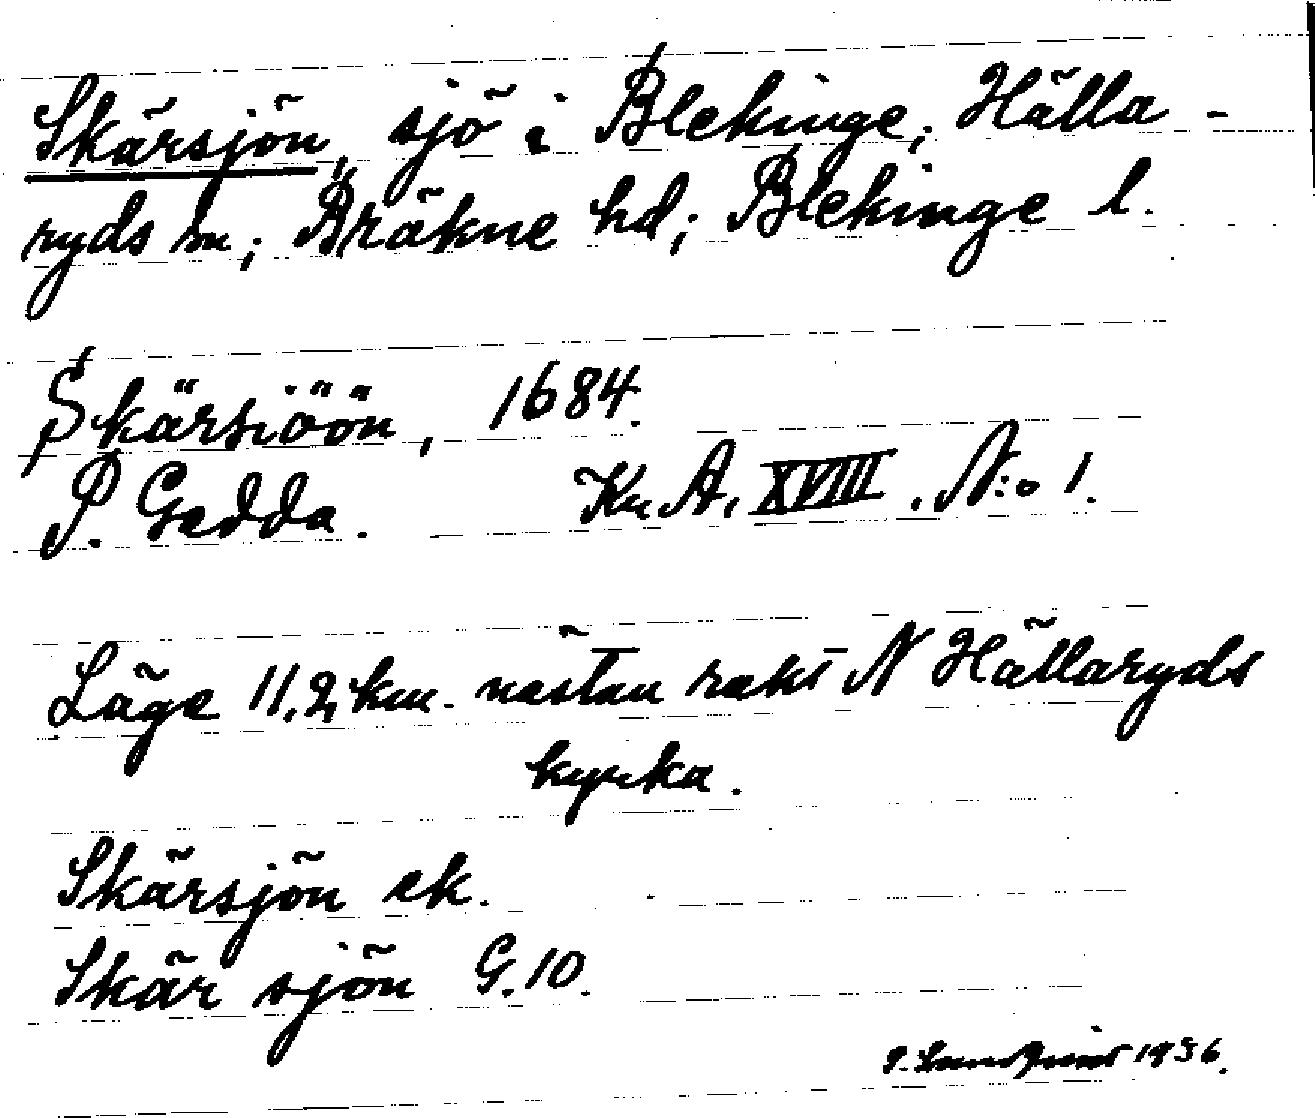 Skärsjön, sjö i Blekinge; Hälla-
ryds sn; Bräkne hd; Blekinge l.
Skärsiöön, 1684.
P. Gedda. Ku. A. XVIII. N:o 1.
Läge 11,2 km. nästan rakt N Hällaryds
kyrka.
Skärsjön ek.
Skär sjön G. 10.
1936.